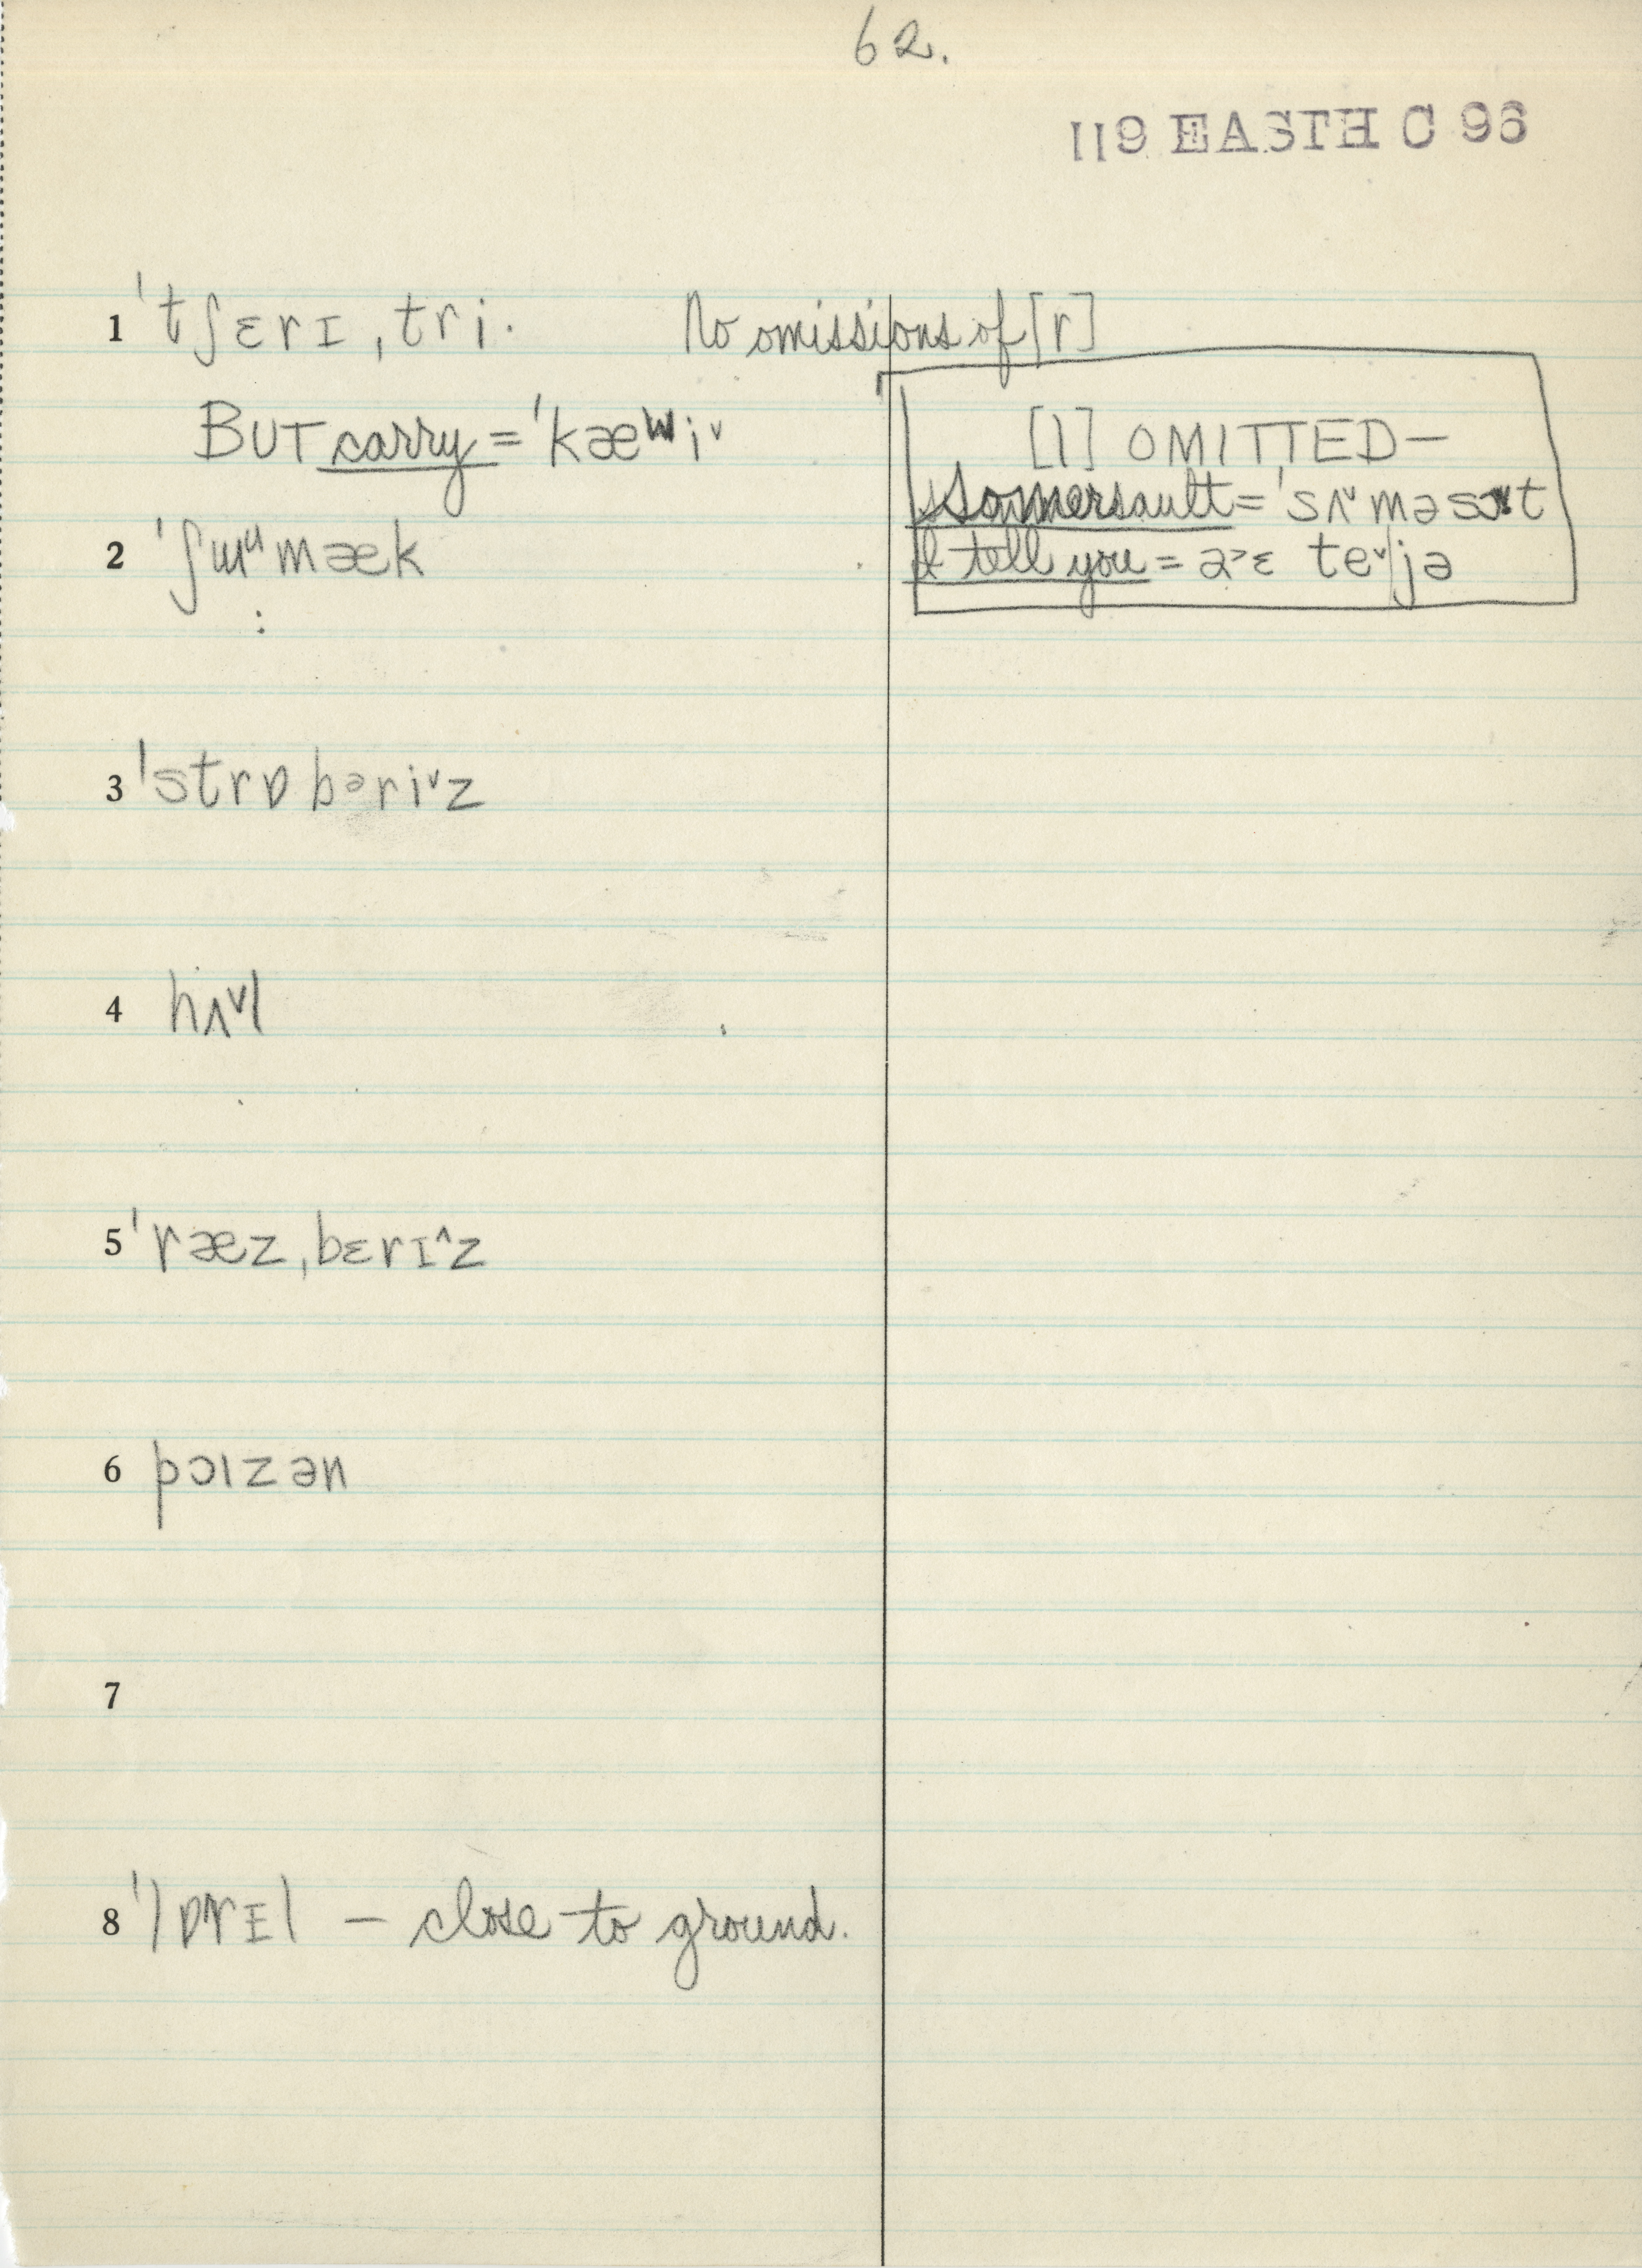 62.
119 EASTH C 96
1 ˈtʃɛrɪˌtri. No omissions of [r]
BUT carry = ˈkæʷi˅
[l] OMITTED—
Somersault = ˈsʌ˅məsɔ˅t
I tell you = a˃ɛ te˅jə
2 ˈʃɯᶣmæk
3 ˈstrɒbᵊri˅z
4 hʌ˅l
5 ˈræzˌbɛrɪ^z
6 pɔɪzən
7
8 ˈlɒrɪl — close to ground.